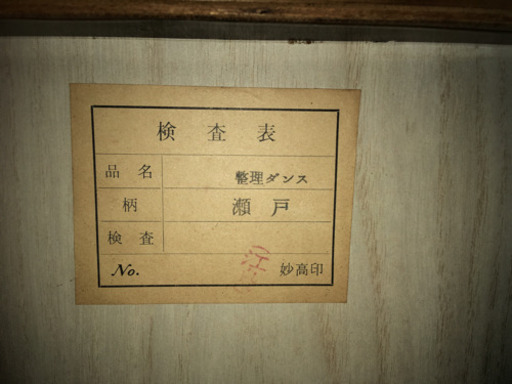 検査表
品名 整理ダンス
柄 瀬戸
検査
No. 妙高印